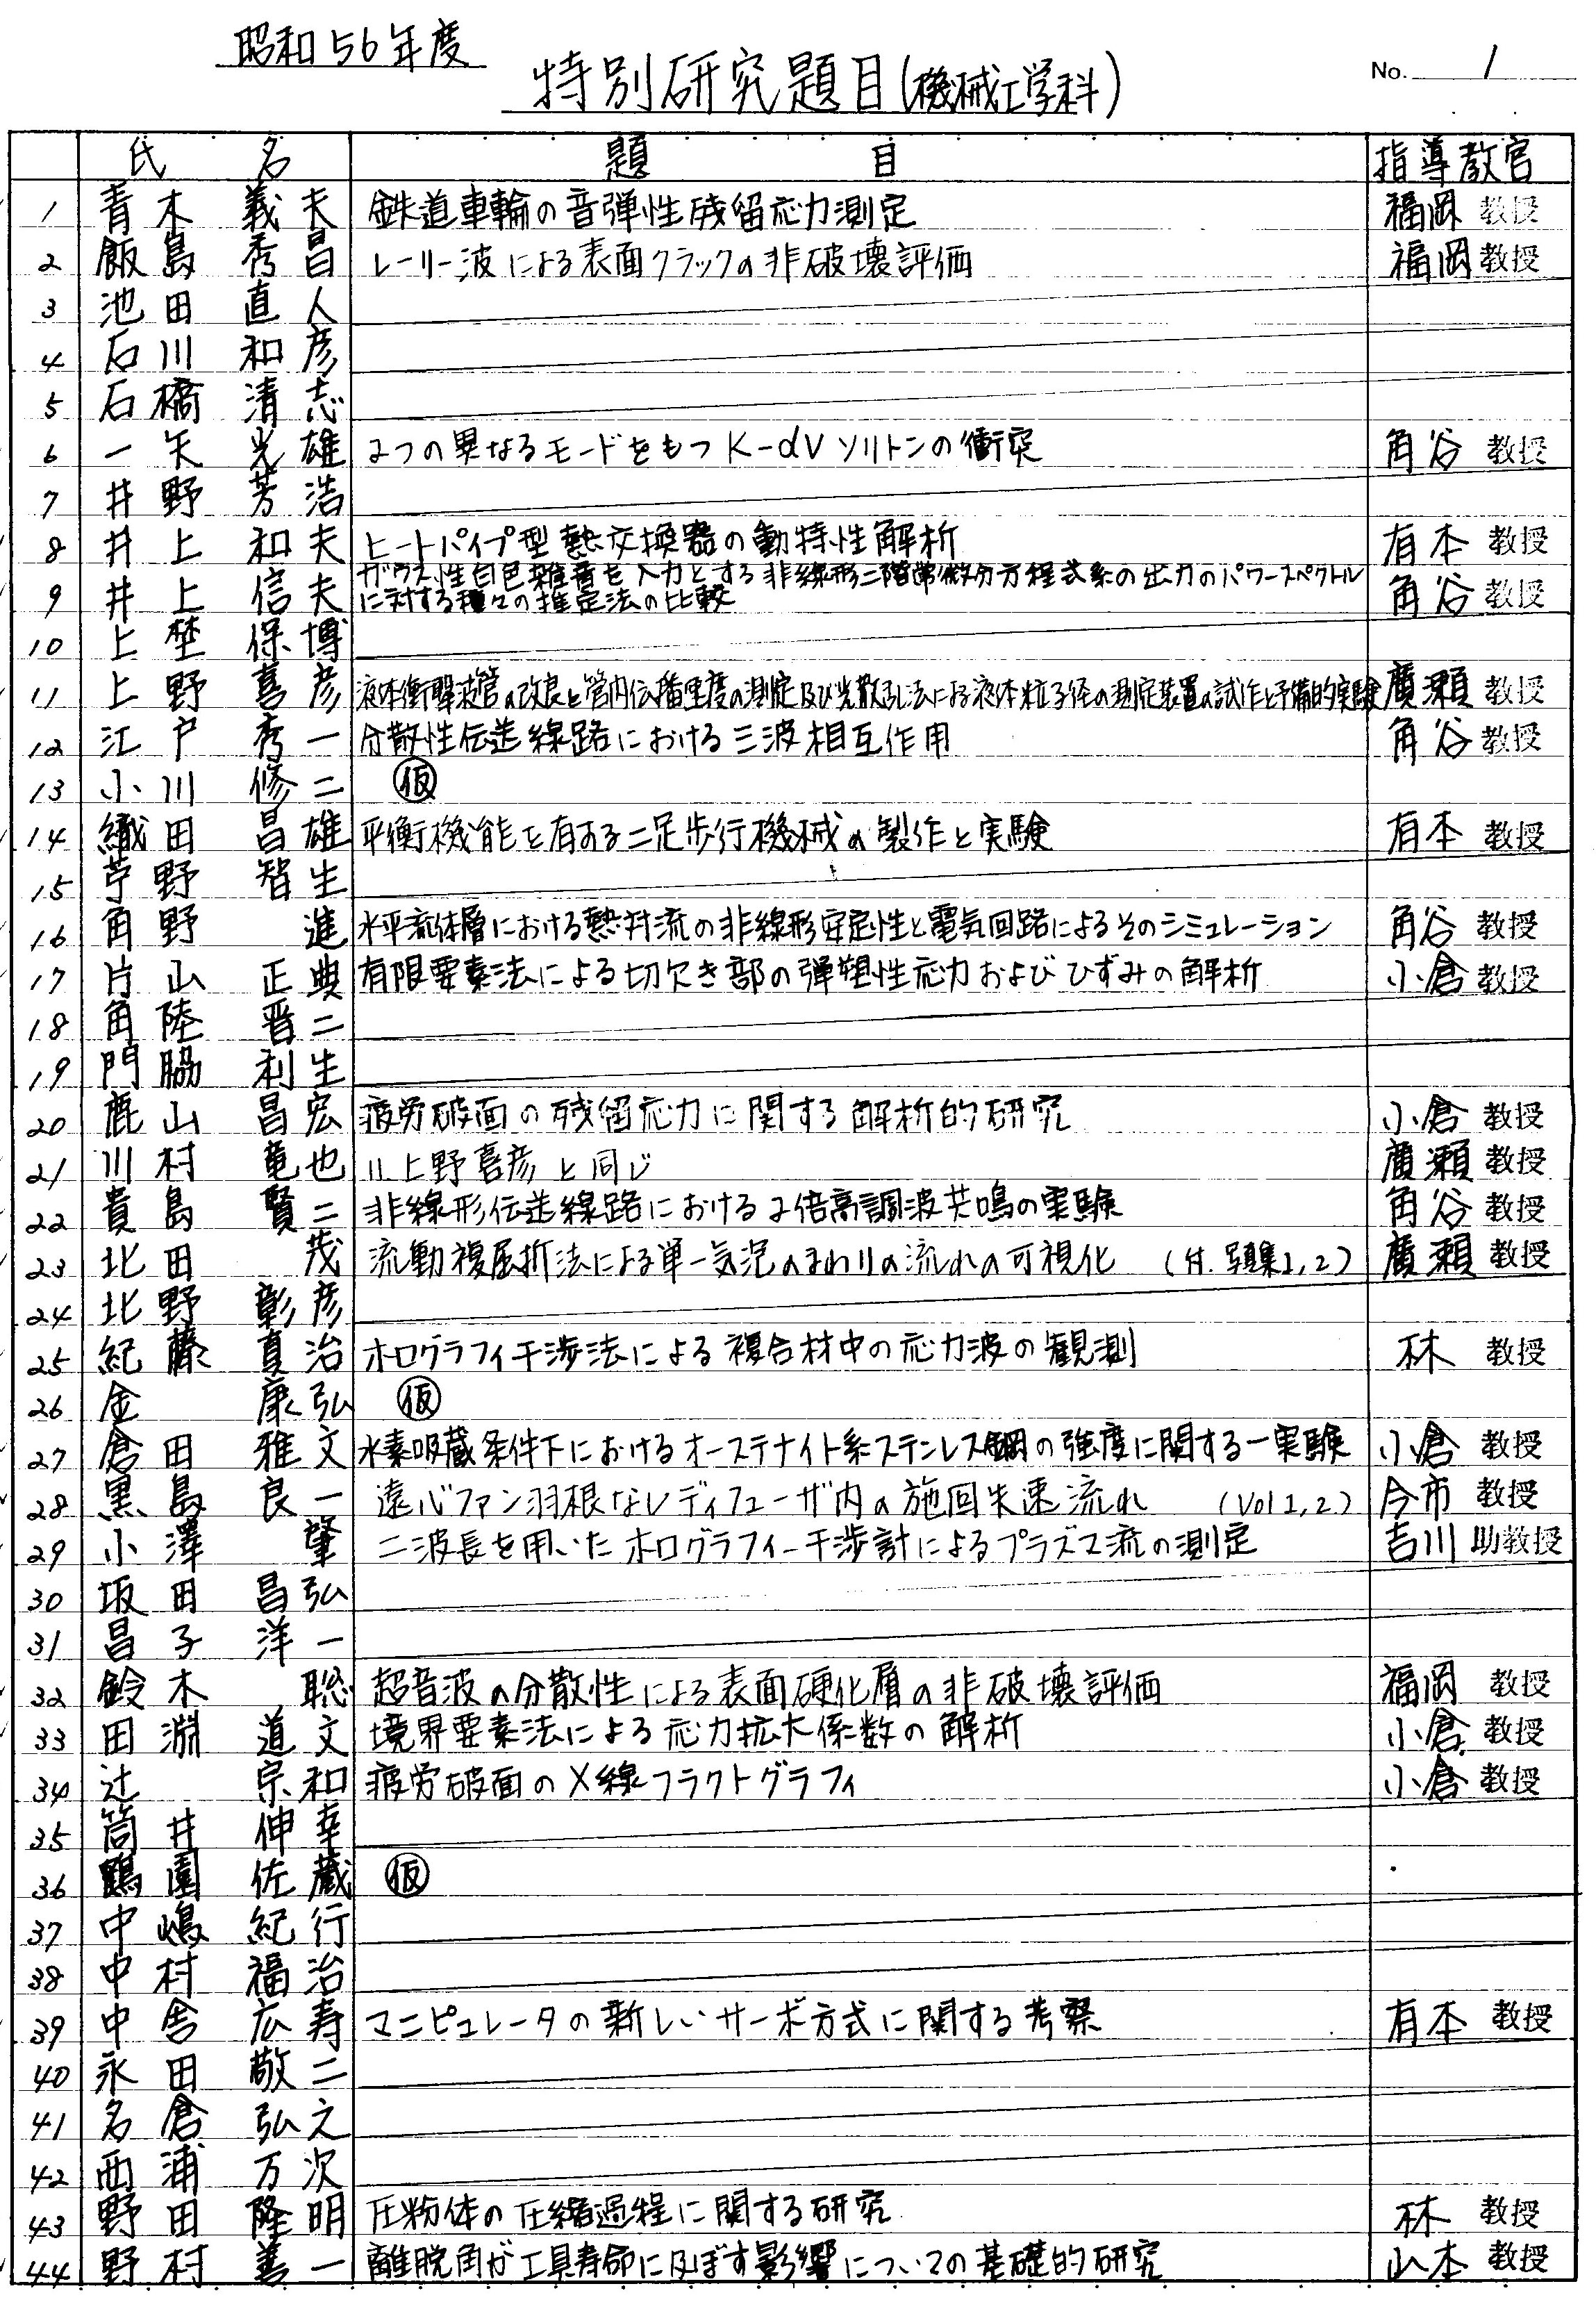 昭和56年度
特別研究題目(機械工学科)
No. 1
氏 名 題 目 指導教官
1 青木 義夫 鉄道車輪の音弾性残留応力測定 福岡 教授
2 飯島 秀昌 レーリー波による表面クラックの非破壊評価 福岡 教授
3 池田 直人
4 石川 和彦
5 石橋 清志
6 一矢 光雄 2つの異なるモードをもつK-dVソリトンの衝突 角谷 教授
7 井野 芳浩
8 井上 和夫 ヒートパイプ型熱交換器の動特性解析 有本 教授
9 井上 信夫 ガウス性白色雑音を入力とする非線形二階常微分方程式系の出力のパワースペクトル
に対する種々の推定法の比較 角谷 教授
10 上埜 保博
11 上野 喜彦 液体衝撃波管の改良と管内伝播速度の測定及び光散乱法による液体粒子径の測定装置の試作と予備的実験 廣瀬 教授
12 江戸 秀一 分散性伝送線路における三波相互作用 角谷 教授
13 小川 修二 仮
14 織田 昌雄 平衡機能を有する二足歩行機械の製作と実験 有本 教授
15 苧野 智生
16 角野 進 水平流体層における熱対流の非線形安定性と電気回路によるそのシミュレーション 角谷 教授
17 片山 正典 有限要素法による切欠き部の弾塑性応力およびひずみの解析 小倉 教授
18 角陸 晋二
19 門脇 利生
20 鹿山 昌宏 疲労破面の残留応力に関する解析的研究 小倉 教授
21 川村 竜也 11上野喜彦と同じ 廣瀬 教授
22 貴島 賢二 非線形伝送線路における2倍高調波共鳴の実験 角谷 教授
23 北田 茂 流動複屈折法による単一気泡のまわりの流れの可視化 (付.写真集1,2) 廣瀬 教授
24 北野 彰彦
25 紀藤 真治 ホログラフィ干渉法による複合材中の応力波の観測 林 教授
26 金 康弘 仮
27 倉田 雅文 水素吸蔵条件下におけるオーステナイト系ステンレス鋼の強度に関する一実験 小倉 教授
28 黒島 良一 遠心ファン羽根なしディフューザ内の旋回失速流れ (Vol 1,2) 今市 教授
29 小澤 肇 二波長を用いたホログラフィー干渉計によるプラズマ流の測定 吉川 助教授
30 坂田 昌弘
31 昌子 洋一
32 鈴木 聡 超音波の分散性による表面硬化層の非破壊評価 福岡 教授
33 田淵 道文 境界要素法による応力拡大係数の解析 小倉 教授
34 辻 宗和 疲労破面のX線フラクトグラフィ 小倉 教授
35 筒井 伸幸
36 鶴園 佐蔵 仮
37 中嶋 紀行
38 中村 福治
39 中舎 広寿 マニピュレータの新しいサーボ方式に関する考察 有本 教授
40 永田 敬二
41 名倉 弘之
42 西浦 万次
43 野田 隆明 圧粉体の圧縮過程に関する研究 林 教授
44 野村 善一 離脱角が工具寿命に及ぼす影響についての基礎的研究 山本 教授